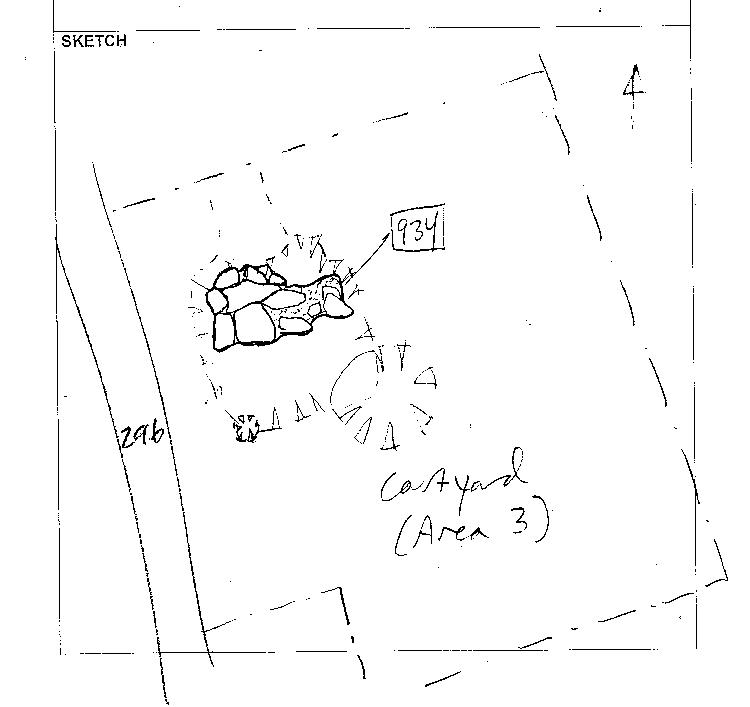 SKETCH
934
296
Courtyard
(Area 3)